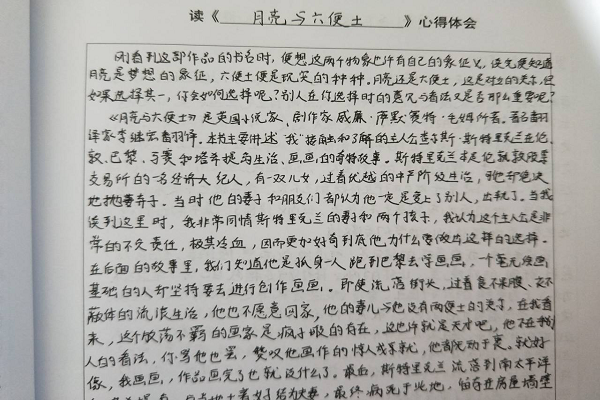 读《 月亮与六便士 》心得体会
刚看到这部作品的书名时，便想这两个物象也许有自己的象征义，读完便知道
月亮是梦想的象征，六便士便是现实的种种。月亮还是六便士，这是对立的
如果选择其一，你会如何选择呢？别人在你选择时的意见与看法又是否那么重要呢？
《月亮与六便士》是英国小说家、剧作家威廉·萨默赛特·毛姆所著。
译家李继宏翻译。本书主要讲述"我"接触和了解的主人公查尔斯·斯特里克兰在伦
敦、巴黎、与塔希提岛生活、画画的奇特故事。斯特里克兰本是伦敦股票
交易所的一名经济大纪人，有一双儿女，过着优越的中产阶级生活，
地抛妻弃子。当时他的妻子和朋友们都认为他一定是爱上了别人，出轨了。当我
读到这里时，我非常同情斯特里克兰的妻子和两个孩子，我认为这个主人公是非
常的不负责任，极其冷血，因而更加好奇到底他为什么要做出这样的选择。
在后面的故事里，我们知道他是孤身一人跑到巴黎去学画画，一个毫无绘画
基础的人却坚持要去进行创作画画。即使流落街头，过着食不果腹、衣不
蔽体的流浪生活，他也不愿意回家，他的妻儿与他没有两便士的关系，在我看
来，这个放荡不羁的画家是疯子般的存在，这也许就是天才吧，他不在乎
人的看法，你骂他也罢，赞叹他画作的惊人成就，他都无动于衷。就好
像，我画画，作品画完了也就没什么了。最后，斯特里克兰流落到南太平洋
与当地土著女子结为夫妻，最终病死于此地，留存在房屋墙壁